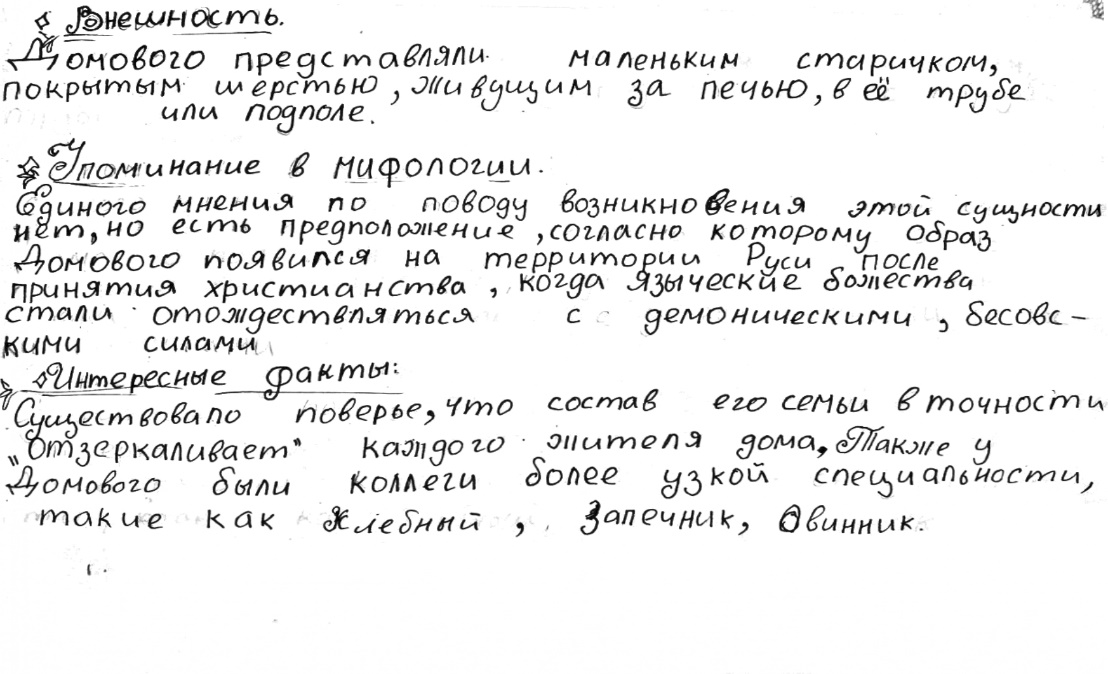 Внешность.
Домового представляли маленьким старичком,
покрытым шерстью, живущим за печью, в её трубе
или подполе.
Упоминание в мифологии.
Единого мнения по поводу возникновения этой сущности
нет, но есть предположение, согласно которому образ
Домового появился на территории Руси после
принятия христианства, когда языческие божества
стали отождествляться с демоническими, бесовс-
кими силами
Интересные факты:
Существовало поверье, что состав его семьи в точности
„отзеркаливает" каждого жителя дома, Также у
Домового были коллеги более узкой специальности,
такие как Хлебный, Запечник, Овинник.